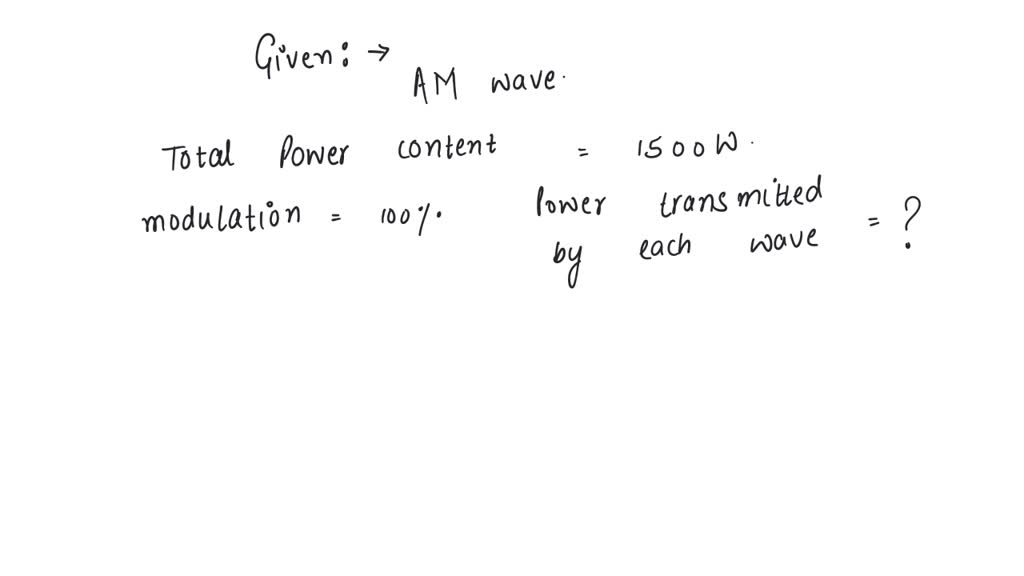 Given: →
AM wave.
Total Power content = 1500W.
modulation = 100%. Power transmitted
by each wave = ?